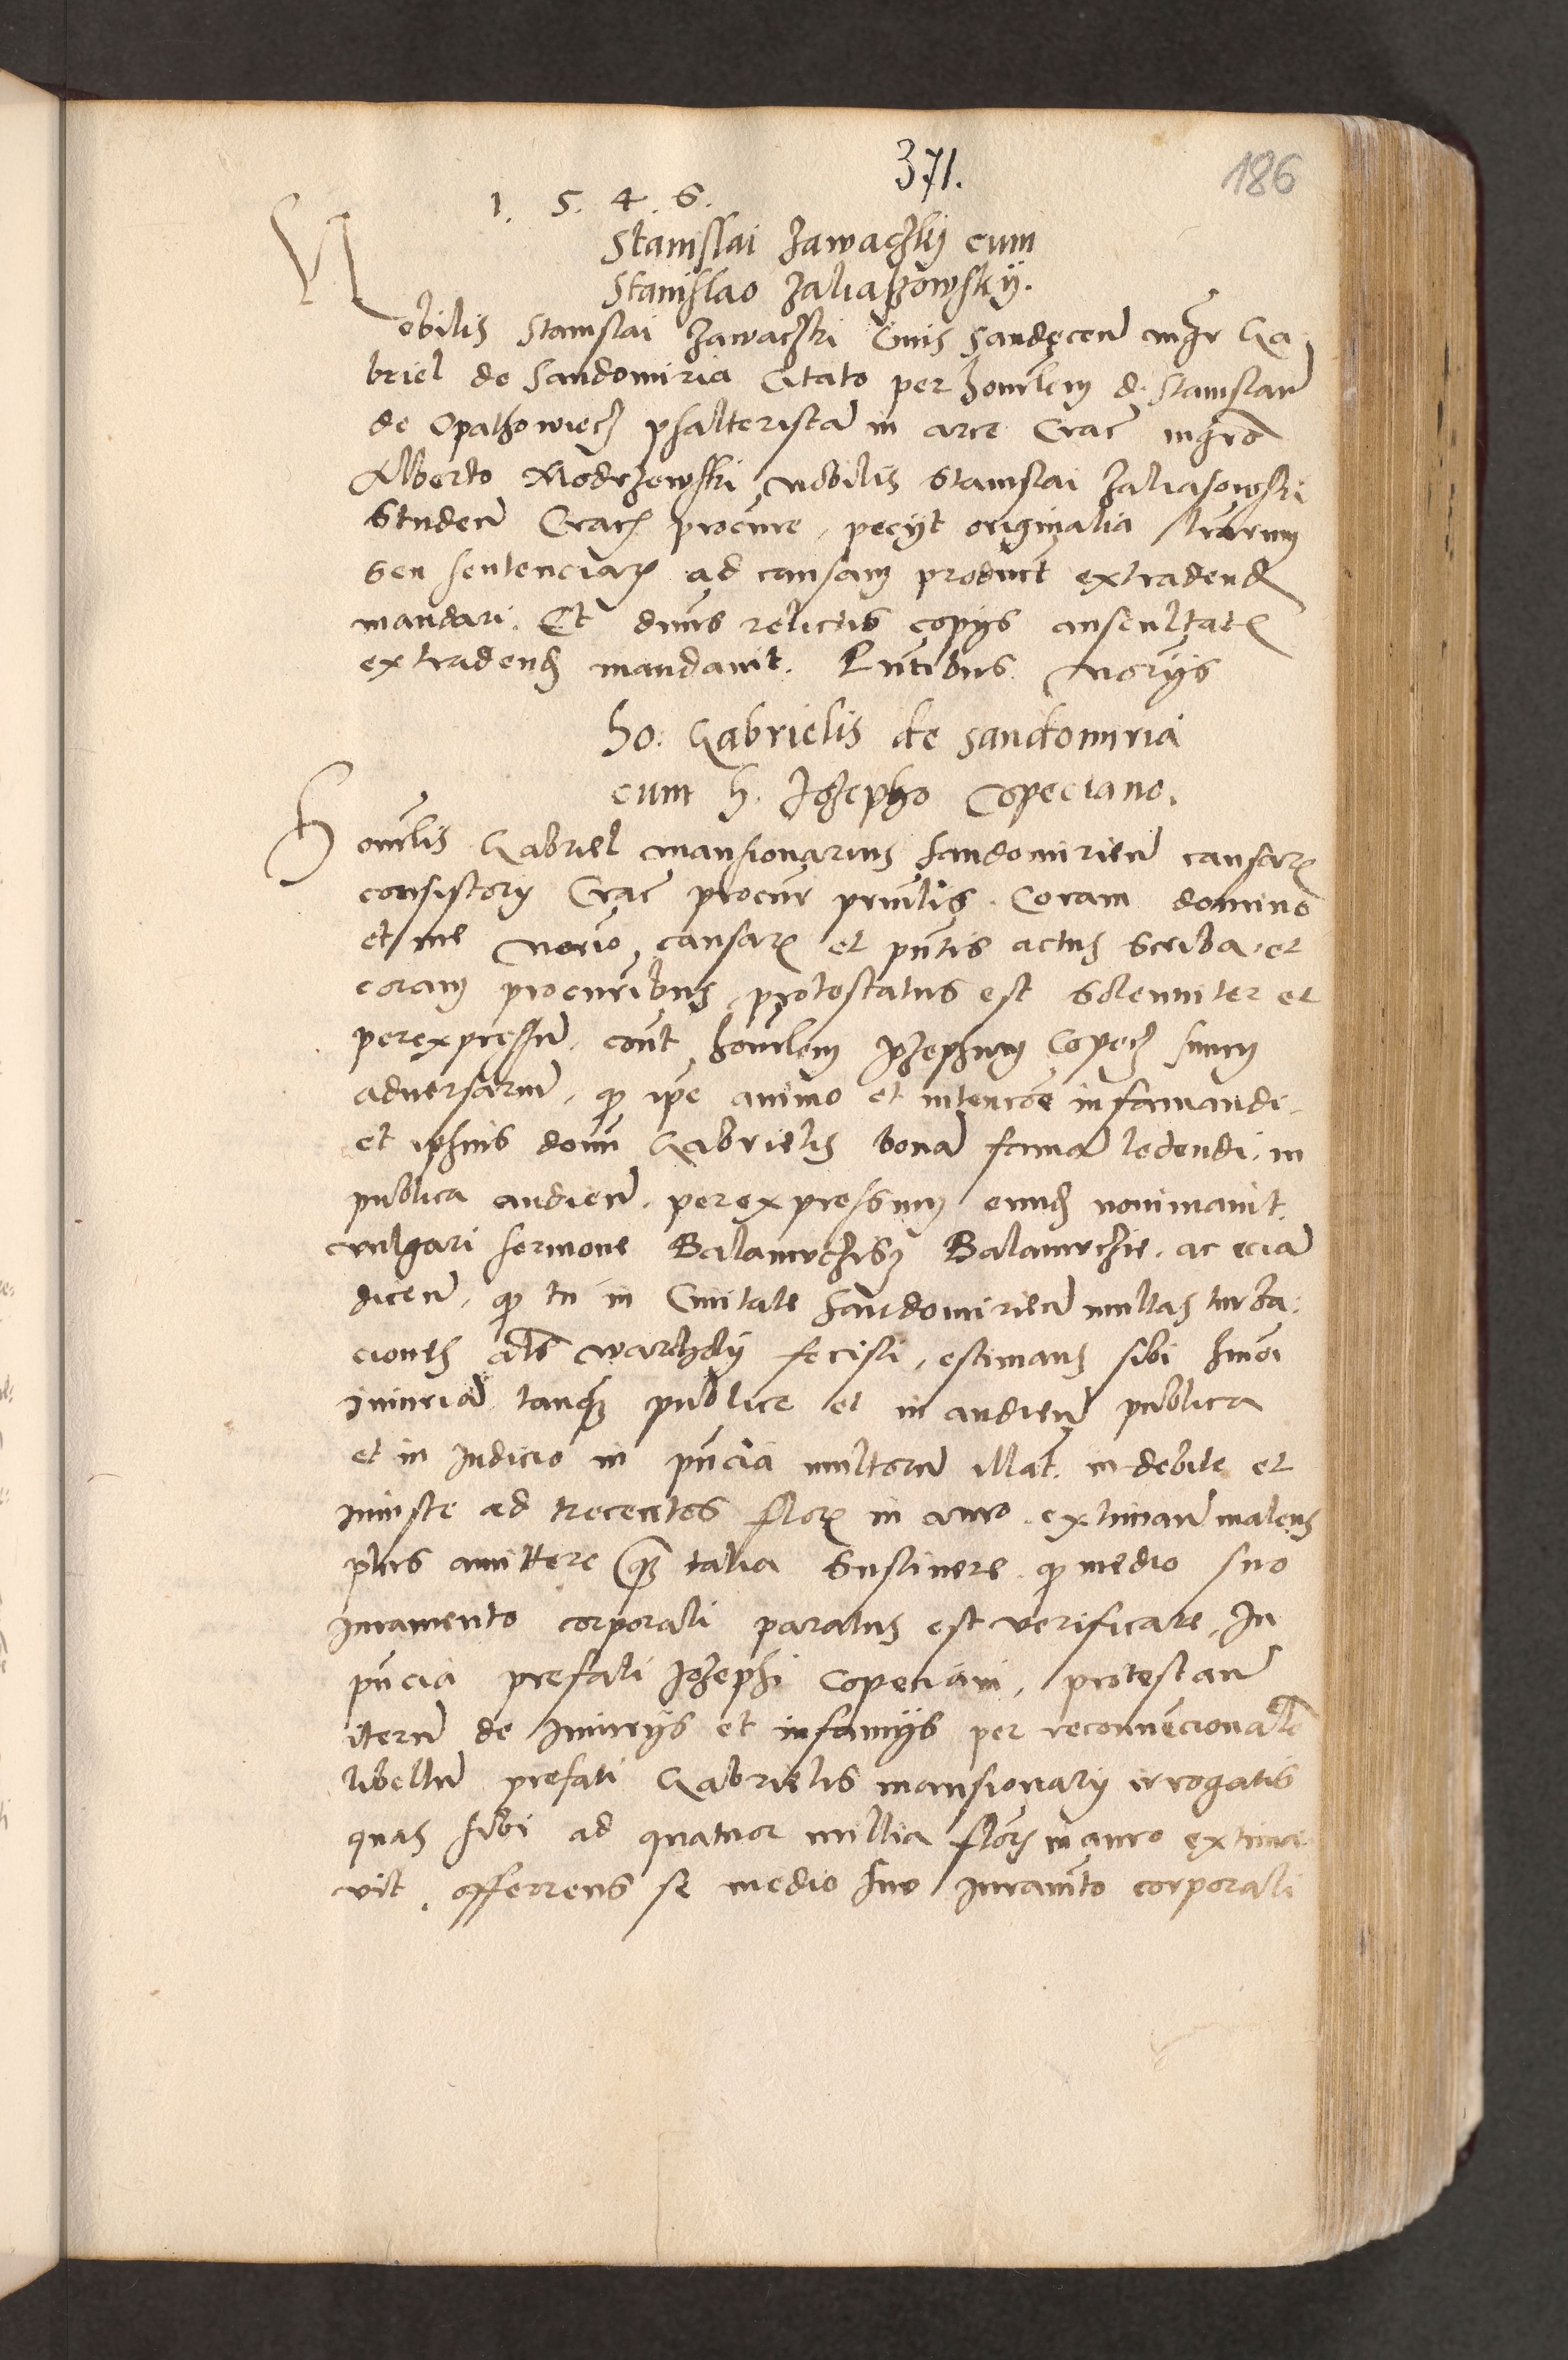 371.
186
1. 5. 4. 6.
Stanislai Zawaczkÿ cum
Stanislao Zaliaszowskÿ.
Nobilis Stanislai Zawaczki Civis Sandecen mgr Ga-
briel de Sandomiria Citato per honorlem d. Stanislau
de Opathowiecz psalteristam in arce Crac mgro
Alberto Modrzewski nobilis Stanislai Zaliasowski
Studen Crac procure, pecijt originalia lrarum
seu sentenciar ad causam product extradend
mandari. Et dnus relictis copijs auscultat
extradend mandavit. Pntibus Norijs
ho: Gabrielis de Sandomiria
cum h. Jozepho Copeciano.
Honorlis Gabriel mansionarius Sandomirien causar
consistorij Crac procur prnlis. Coram domino
et me Norio, causar et pntis actus scriba. et
coram procuribus, protestatus est solenniter et
perexpressum, cont honorlem Jozephum Copecz suum
adversarium, qz ipe animo et intencoe infamandi,
et ipsius domi Gabrielis bonam famam ledendi, in
publica audien. perexpressum eund nominavit.
vulgari sermone Balamuthisz Balamuthie. ac eciam
dicen, qz tu in Civitate Sandomirien multas turba-
ciones als warcholy fecisti, estimans sibi hmoi
iniuriam tanqz publice et in audien publica
et in Judicio in pncia multorum illat. indebite et
iniuste ad trecentos flor in auro. extiman malens
plus amittere qz talia sustinere. qz medio suo
Juramento corporali paratus est verificare, In
pncia prefati Jozephi Copeciani, protestan
iterum de Iniurijs et infamijs per reconvecionale
libellum prefati Gabrielis mansionarij irrogatis
quas sibi ad quatuor millia flor in auro extima-
vit, offerrens se medio suo Juramto corporali